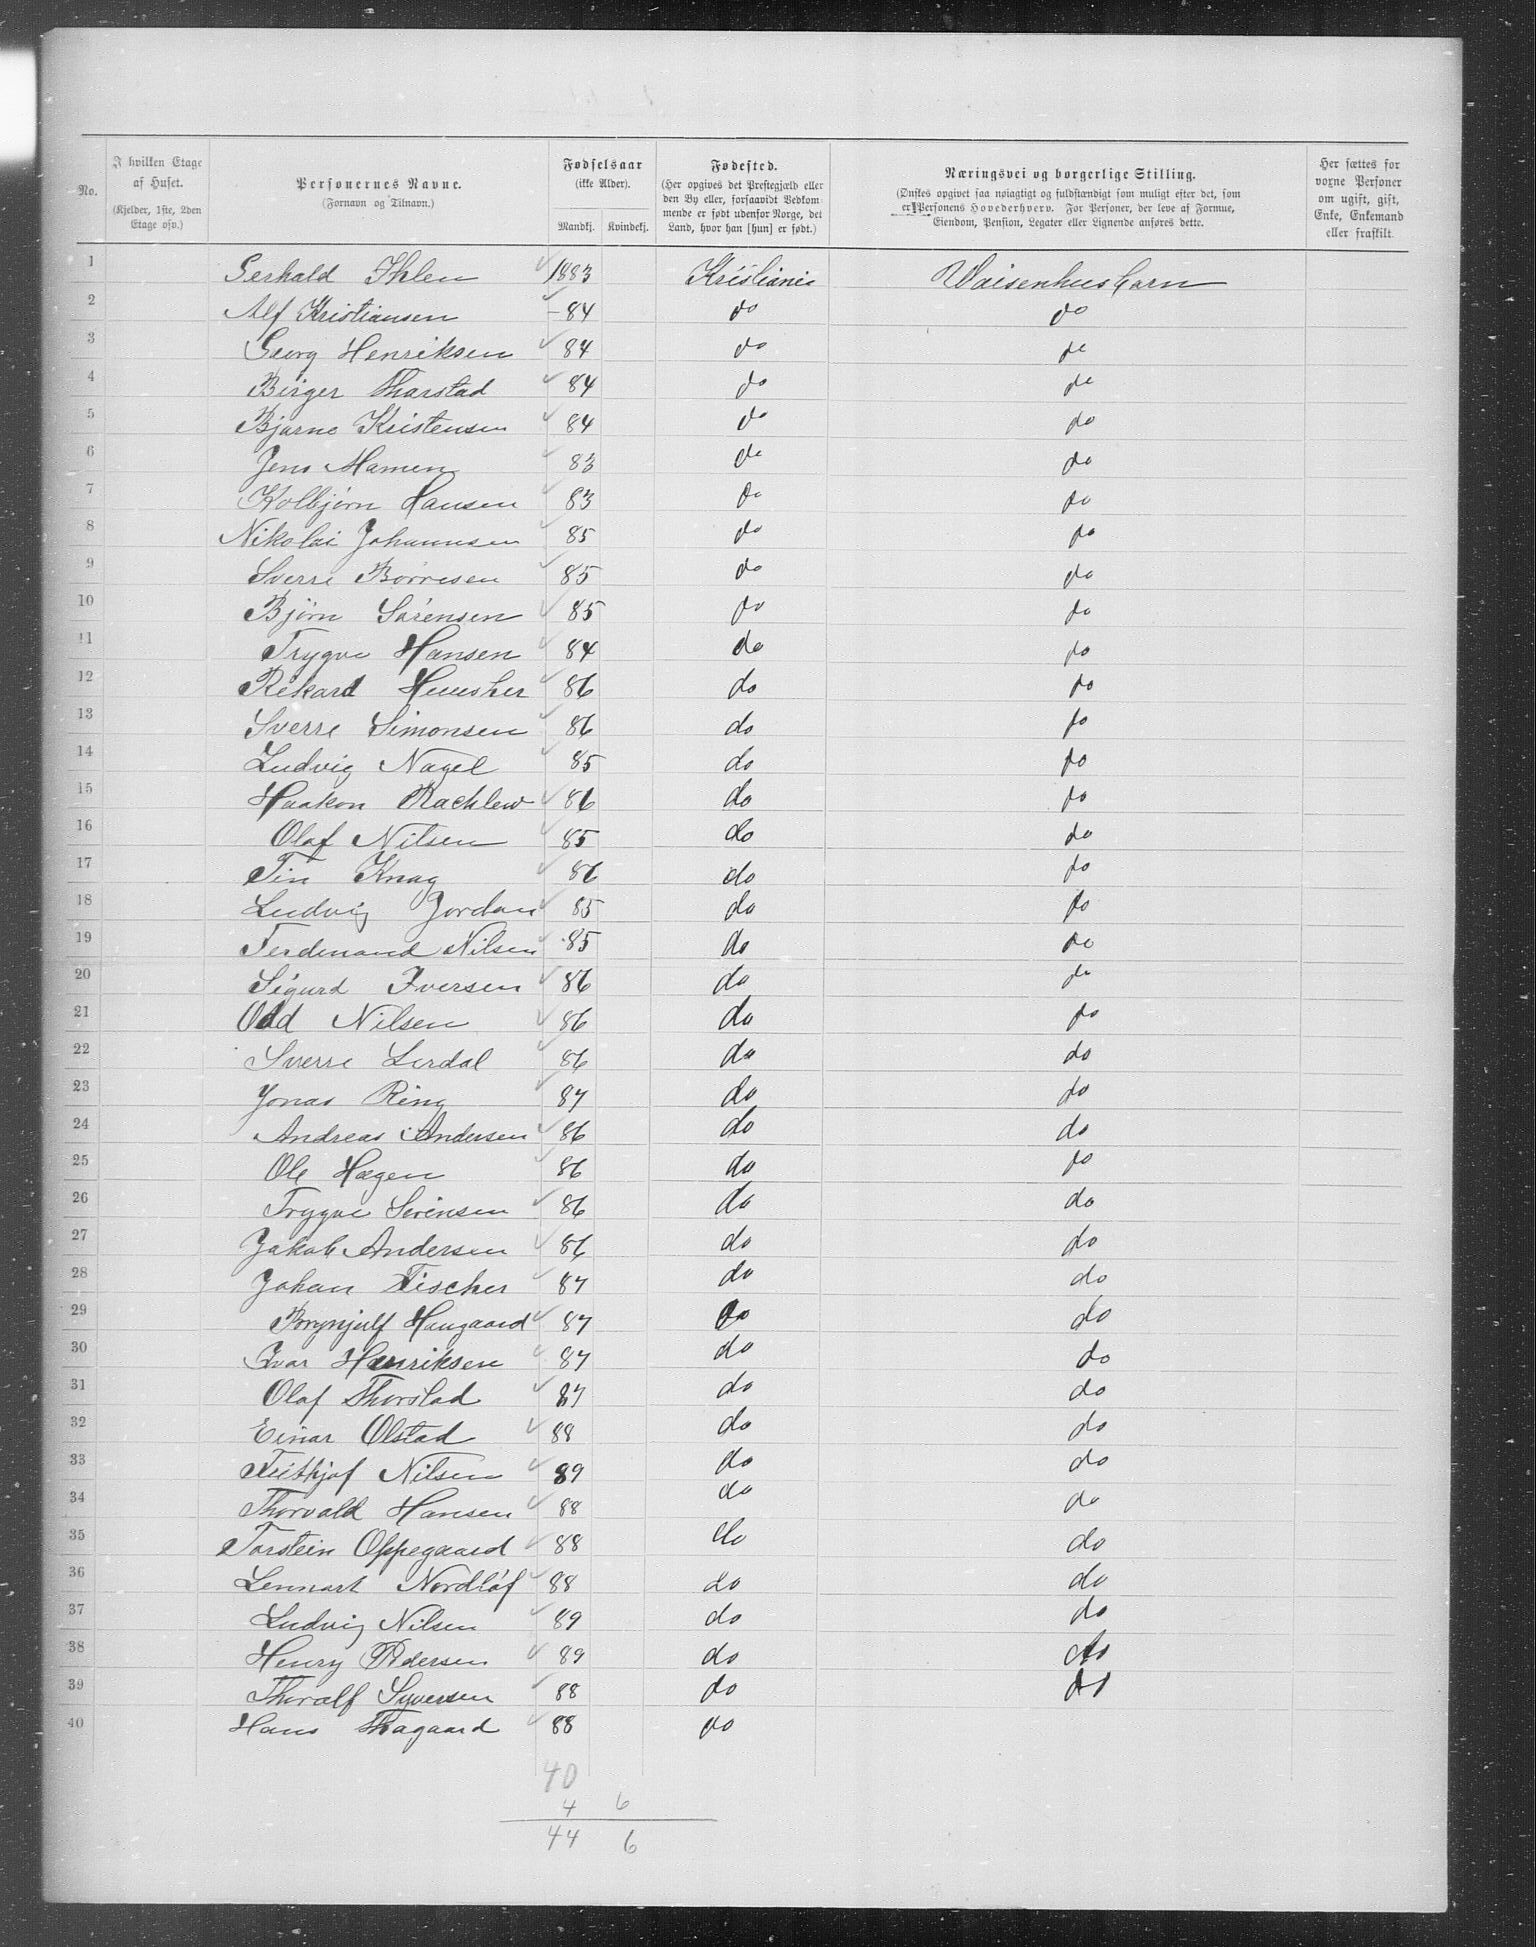 No.
I hvilken Etage
af Huset.
(Kjelder, 1ste, 2den
Etage osv.)
Personernes Navne.
(Fornavn og Tilnavn.)
Fødselsaar
(ikke Alder).
Mandkj. Kvindekj.
Fødested.
(Her opgives det Prestegjæld eller
den By eller, forsaavidt Vedkom-
mende er født udenfor Norge, det
Land, hvor han [hun] er født.)
Næringsvei og borgerlige Stilling.
(Ønskes opgivet saa nøiagtigt og fuldstændigt som muligt efter det, som
er Personens Hovederhverv. For Personer, der leve af Formue,
Eiendom, Pension, Legater eller Lignende anføres dette.
Her sættes for
voxne Personer
om ugift, gift,
Enke, Enkemand
eller fraskilt.
1 Gerhald Ihlen 1883 Kristiania Waisenhusbarn
2 Alf Kristiansen - 84 do do
3 Georg Henriksen 84 do do
4 Birger Tharstad 84 do do
5 Bjarne Kristensen 84 do do
6 Jens Mamen 83 do do
7 Kolbjørn Hansen 83 do do
8 Nikolai Johannsen 85 do do
9 Sverre Børresen 85 do do
10 Bjørn Sørensen 85 do do
11 Trygve Hansen 84 do do
12 Rikard 86 do do
13 Sverre Simonsen 86 do do
14 Ludvig Nagel 85 do do
15 Haakon Rachlew 86 do do
16 Olaf Nilsen 85 do do
17 Knag 86 do do
18 Ludvig Jordan 85 do do
19 Ferdinand Nilsen 85 do do
20 Sigurd Iversen 86 do do
21 Odd Nilsen 86 do do
22 Sverre Lerdal 86 do do
23 Jonas Ring 87 do do
24 Andreas Andersen 86 do do
25 Ole Hagen 86 do do
26 Trygve Sørensen 86 do do
27 Jakob Andersen 86 do do
28 Johan Fischer 87 do do
29 Brynjulf Haugaard 87 do do
30 Ivar Henriksen 87 do do
31 Olaf Thorstad 87 do do
32 Einar Olstad 88 do do
33 Frithjof Nilsen 89 do do
34 Thorvald Hansen 88 do do
35 Torstein Oppegaard 88 do do
36 Lennart Nordløf 88 do do
37 Ludvig Nilsen 89 do do
38 Henry Pedersen 89 do do
39 Thoralf Syversen 88 do do
40 Hans Thagaard 88 do
40
4 6
44 6